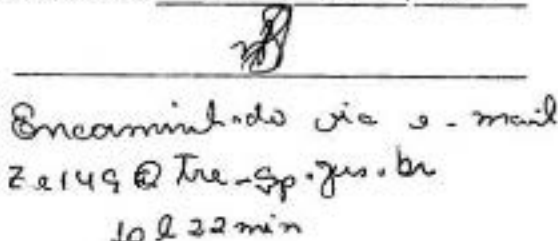 Encaminhado via e-mail
Ze149@tre-sp.jus.br
10h22min